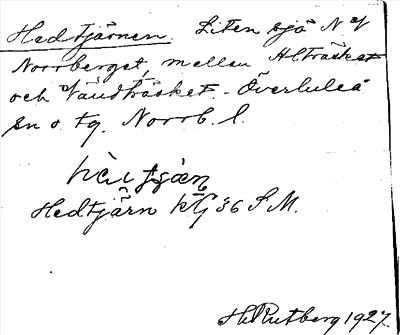 Hedtjärnen. Liten sjö N of
Norrberget, mellan Alträsket
och Vändträsket. Överluleå
sn o. tg. Norrb. l.
Hedtjärn kG 36 S.M.
H. Rutberg 1927.